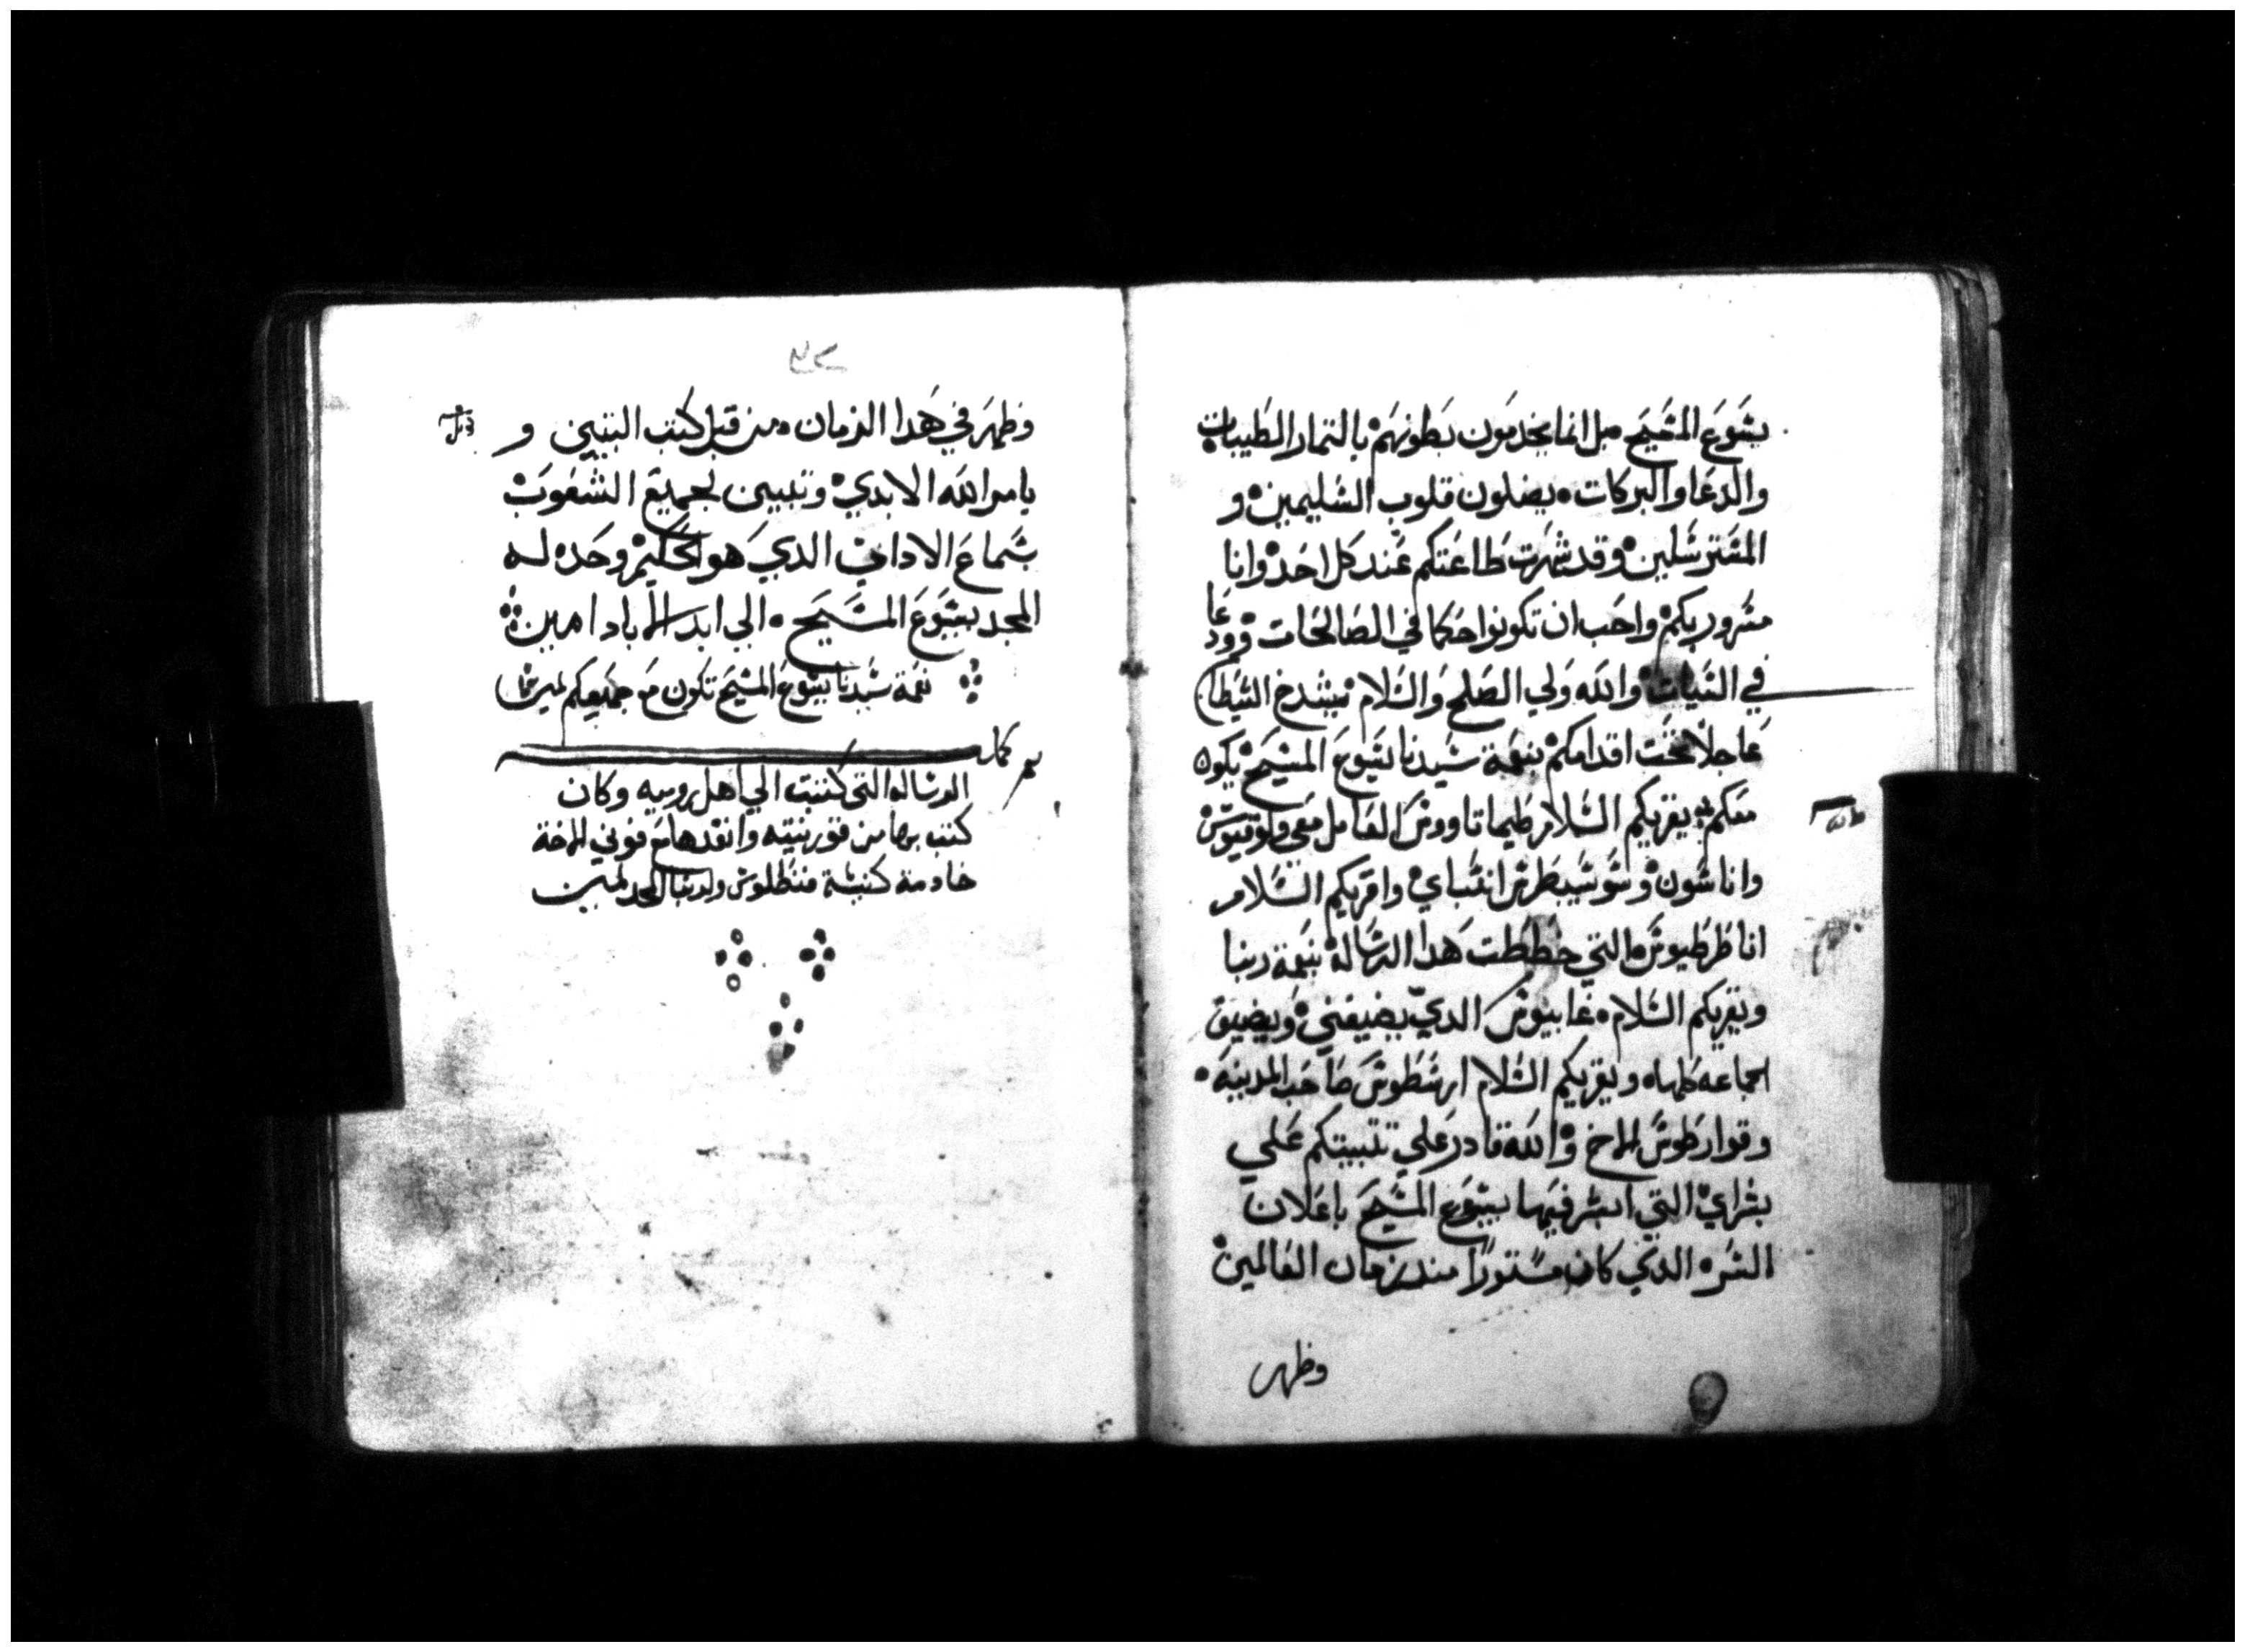 يشوع المشيح بل انما يخدمون بطونهم بالتمار الطيبات
والدعا والبركات يضلون قلوب الشليمين و
المشترشلين وقد شهرت طاعتكم عند كل احد وانا
مشرور بكم واحب ان تكونوا حكما في الصالحات وودعا
في الشيات والله ولي الصلح والشلام يشدخ الشيطان
عاجلا تحت اقدامكم نعمة شيدنا يشوع المشيح يكون
معكم يقريكم الشلام طيماتاووش العامل معي ولوقيوش
واناشون وشوشيبطرش انشباي واقريكم الشلام
انا طرطيوش التي خططت هدا الرشالة بنعمة ربنا
ويقريكم الشلام غابيوش الدي يضيفني ويضيف
الجماعه كلها ويقريكم الشلام ارشطوش صاحب المدينة
وقوارطوش الاخ والله قادر علي تتبيتكم علي
بشراي التي ابشر فيها بيشوع المشيح باعلان
الشر الدي كان مشتورا مند زمان العالمين
وظهر
وظهر في هدا الزمان من قبل كتب النبيين و
يامر الله الابدي وتبين لجميع الشعوب
بشماع الادان الدي هو الحكيم وحده له
المجد بيشوع المشيح الي ابد الاباد امين
نعمة شيدنا يشوع المشيح تكون مع جميعكم امين
الرشاله التي كتبت الي اهل روميه وكان
كتب بها من قورنتيه وانفدها مع فوني الاخة
خادمة كنيشة قنطلوش ولربنا المجد امين